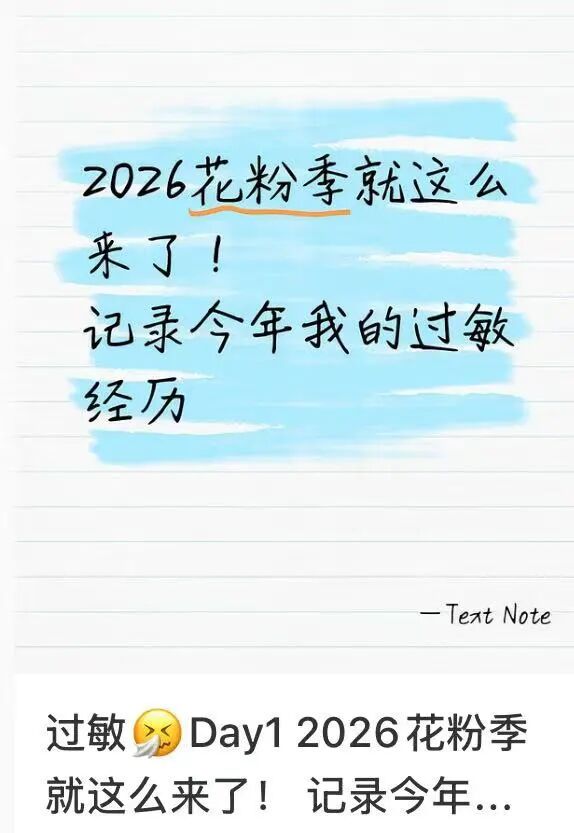 2026花粉季就这么
来了！
记录今年我的过敏
经历
—Text Note
过敏🤧Day1 2026花粉季
就这么来了！ 记录今年...